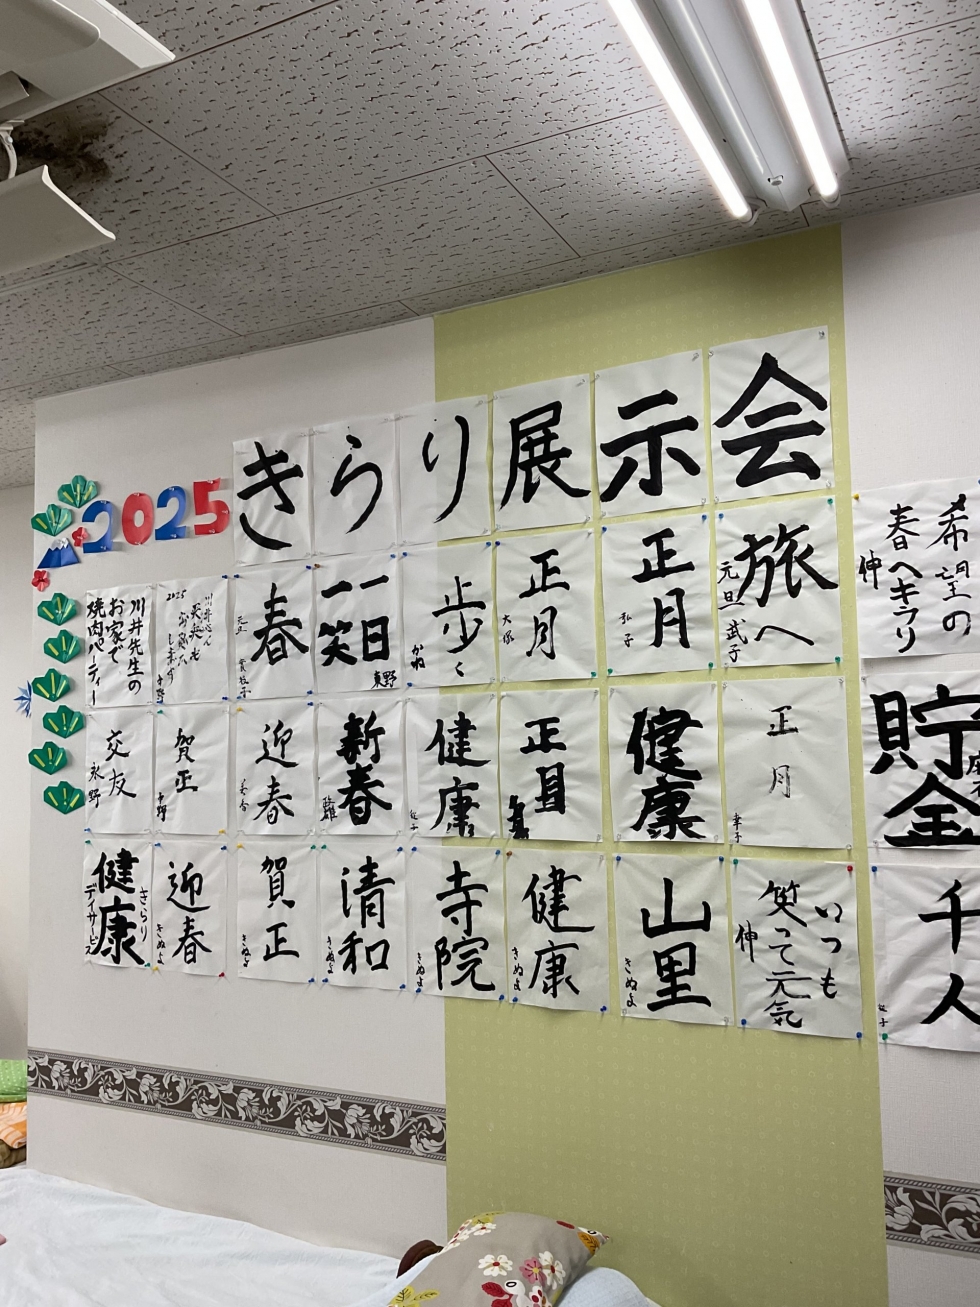 きらり展示会
2025
川井先生の
お家で
焼肉パーティー
2025
春
元旦
一日
一笑
東野
歩く
かね
正月
大塚
正月
弘子
旅へ
元旦
武子
希望の
春へキラリ
伸
交友
永野
賀正
迎春
新春
健康
正月
健康
正月
幸子
貯金
きらり
デイサービス
健康
迎春
きぬよ
賀正
きぬよ
清和
きぬよ
寺院
きぬよ
健康
きぬよ
山里
きぬよ
いつも
笑って元気
伸
千人